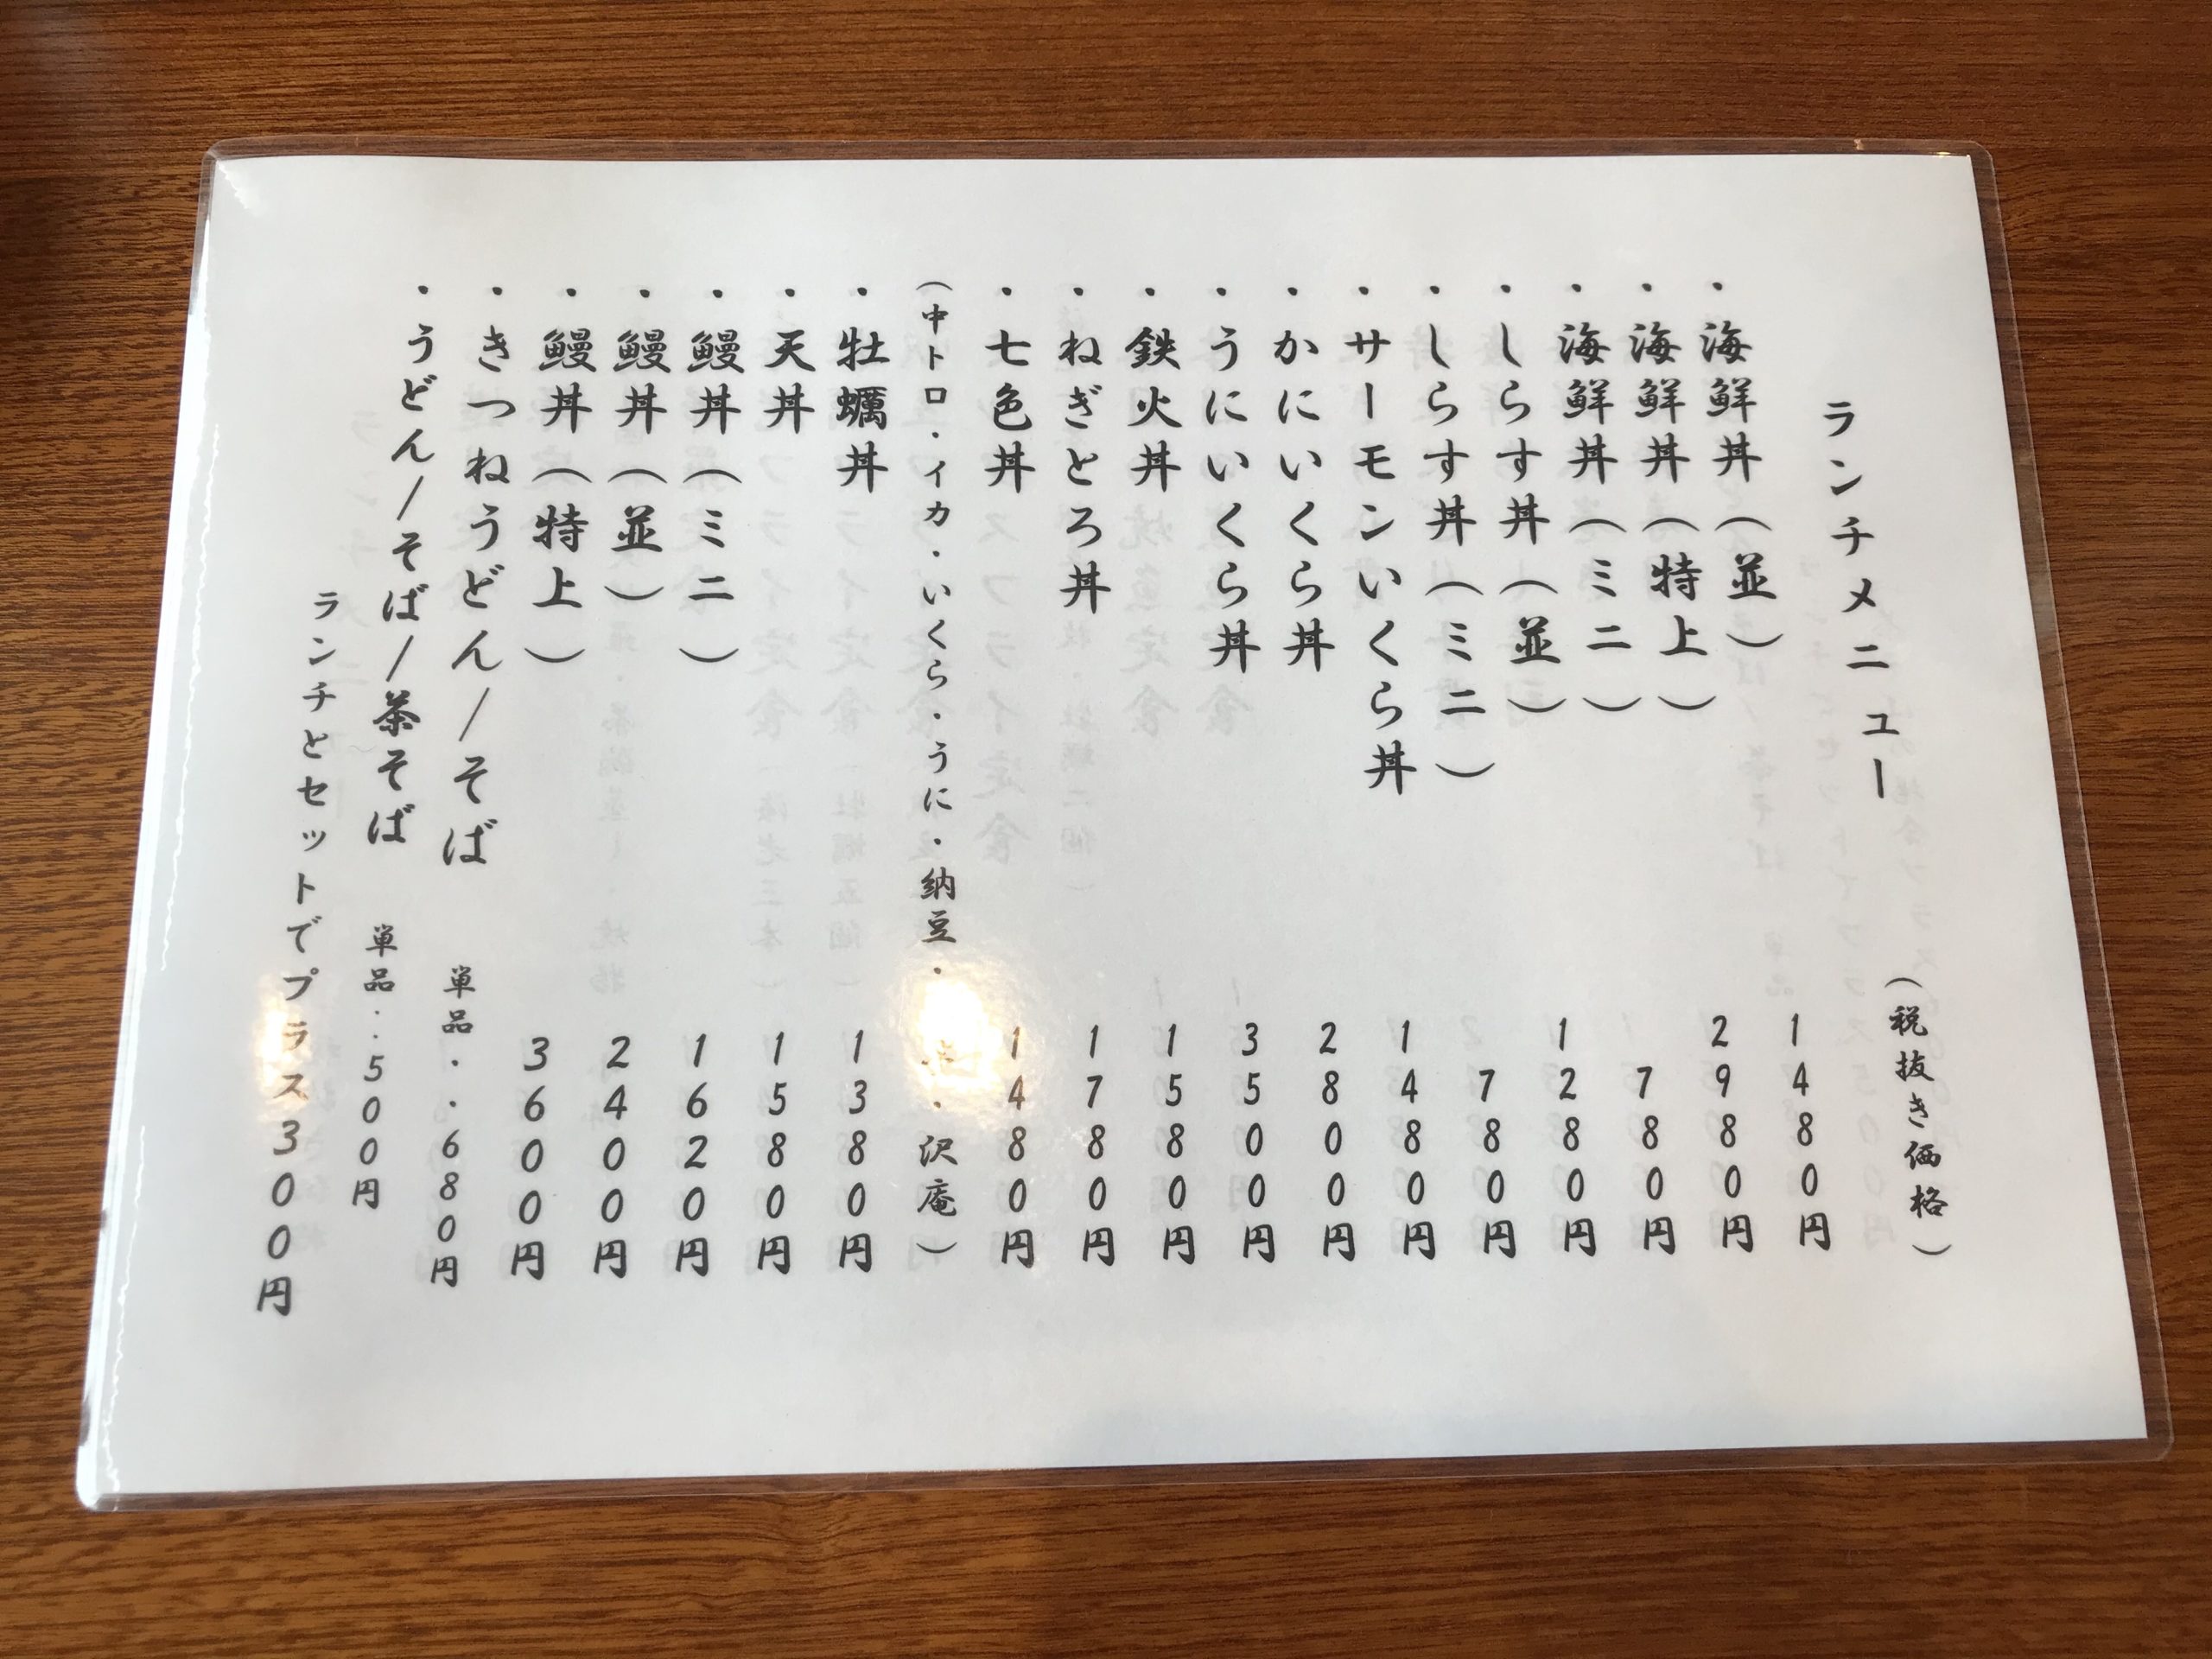 ランチメニュー （税抜き価格）
・海鮮丼（並） 1480円
・海鮮丼（特上） 2980円
・海鮮丼（ミニ） 780円
・しらす丼（並） 1280円
・しらす丼（ミニ） 780円
・サーモンいくら丼 1480円
・かにいくら丼 2800円
・うにいくら丼 3500円
・鉄火丼 1580円
・ねぎとろ丼 1780円
・七色丼 1480円
（中トロ・イカ・いくら・うに・納豆・ ・沢庵）
・牡蠣丼 1380円
・天丼 1580円
・鰻丼（ミニ） 1620円
・鰻丼（並） 2400円
・鰻丼（特上） 3600円
・きつねうどん/そば 単品・・680円
・うどん/そば/茶そば 単品・・500円
ランチとセットでプラス300円